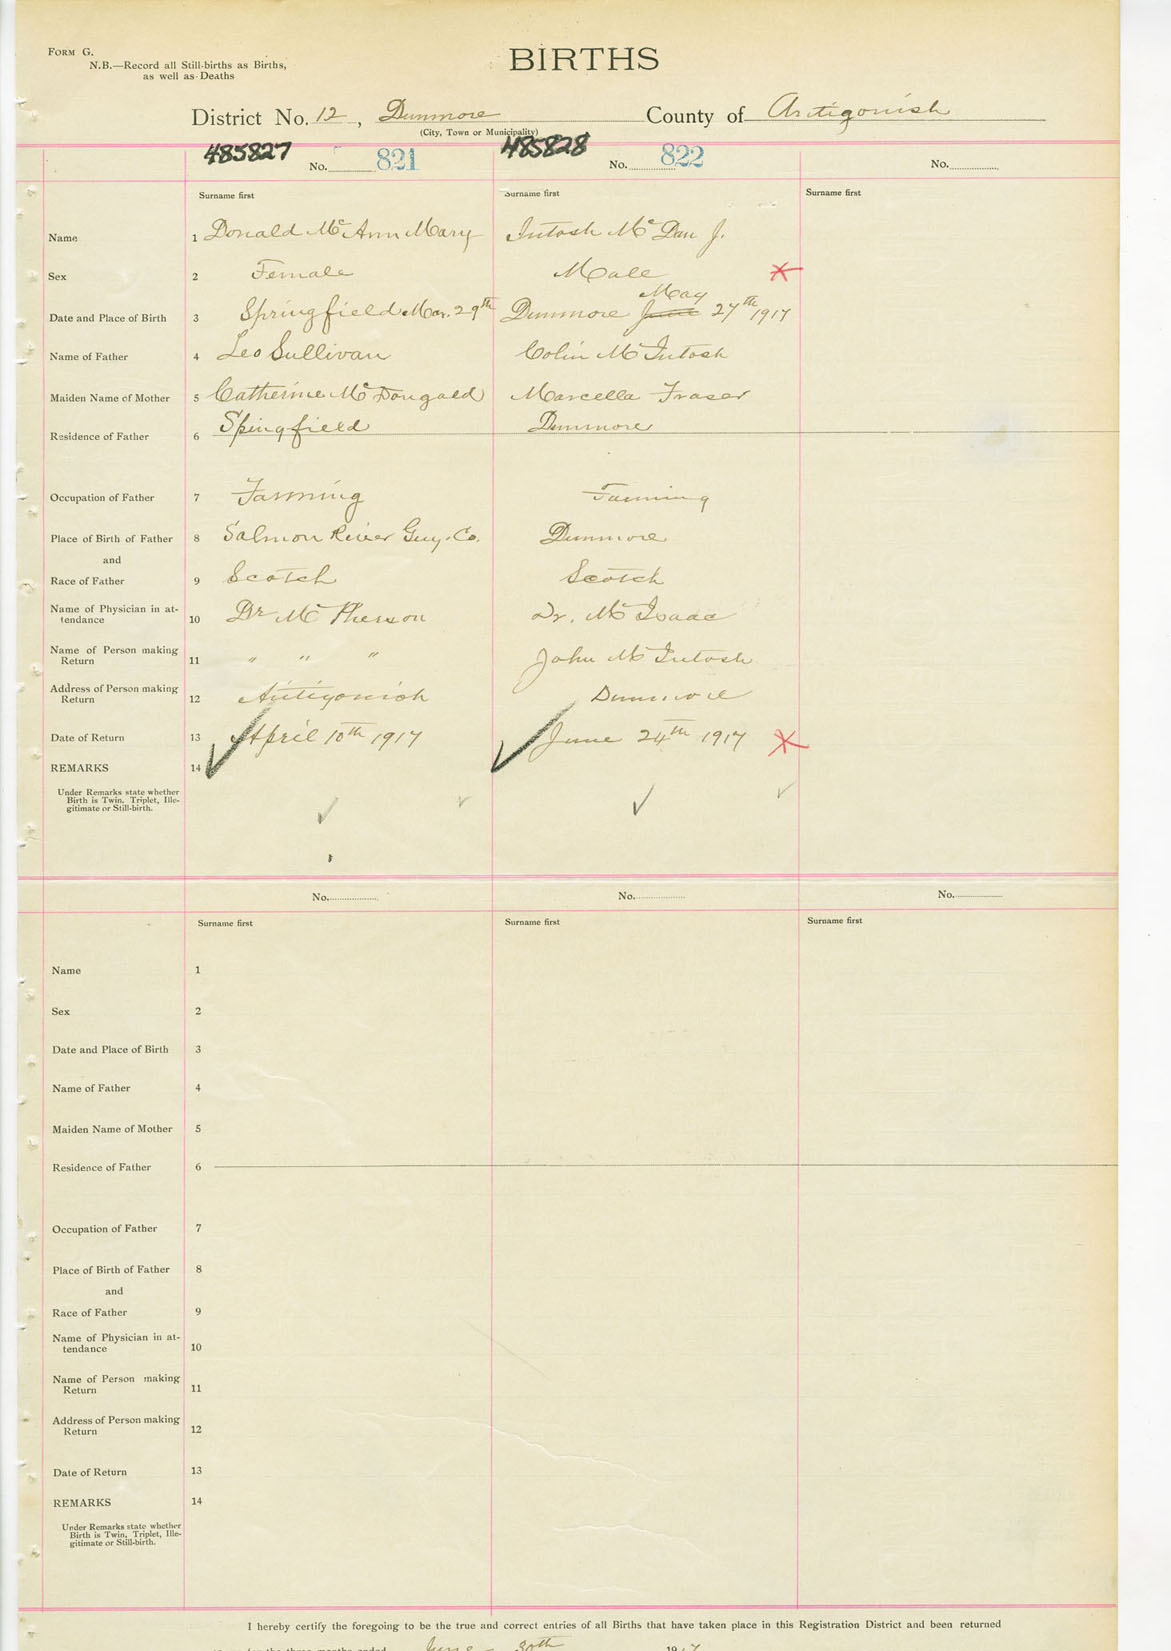 FORM G.
N.B.—Record all Still-births as Births,
as well as Deaths
BIRTHS
District No. 12, Dunmore County of Antigonish
(City, Town or Municipality)
485827 No. 821 485828 No. 822 No.
Surname first Surname first Surname first
Name 1 Donald Mc Ann Mary Intosh Mc Dan J.
Sex 2 Female Male
May
Date and Place of Birth 3 Springfield Mar. 29th Dunmore June 27th 1917
Name of Father 4 Leo Sullivan Colin McIntosh
Maiden Name of Mother 5 Catherine McDougald Marcella Fraser
Residence of Father 6 Springfield Dunmore
Occupation of Father 7 Farming Farming
Place of Birth of Father 8 Salmon River Guy. Co. Dunmore
and
Race of Father 9 Scotch Scotch
Name of Physician in at-
tendance 10 Dr McPherson Dr. McIsaac
Name of Person making
Return 11 " " " John McIntosh
Address of Person making
Return 12 Antigonish Dunmore
Date of Return 13 April 10th 1917 June 24th 1917
REMARKS 14
Under Remarks state whether
Birth is Twin, Triplet, Ille-
gitimate or Still-birth.
No. No. No.
Surname first Surname first Surname first
Name 1
Sex 2
Date and Place of Birth 3
Name of Father 4
Maiden Name of Mother 5
Residence of Father 6
Occupation of Father 7
Place of Birth of Father 8
and
Race of Father 9
Name of Physician in at-
tendance 10
Name of Person making
Return 11
Address of Person making
Return 12
Date of Return 13
REMARKS 14
Under Remarks state whether
Birth is Twin, Triplet, Ille-
gitimate or Still-birth.
I hereby certify the foregoing to be the true and correct entries of all Births that have taken place in this Registration District and been returned
the three months ended June 30th 1917